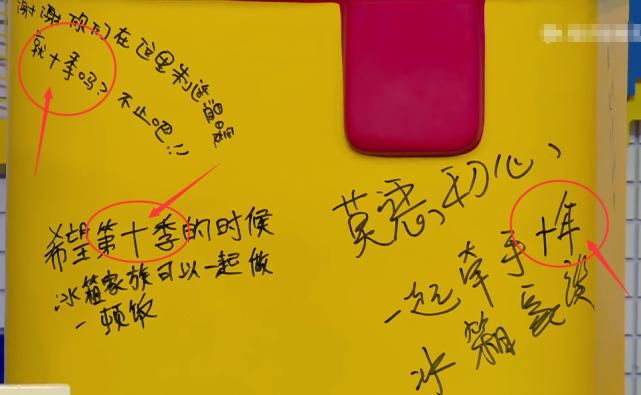 谢谢你们在这里制造
就十季吗？不止吧！！
希望第十季的时候
冰箱家族可以一起做
一顿饭
莫忘初心、
一起牵手十年
冰箱家族